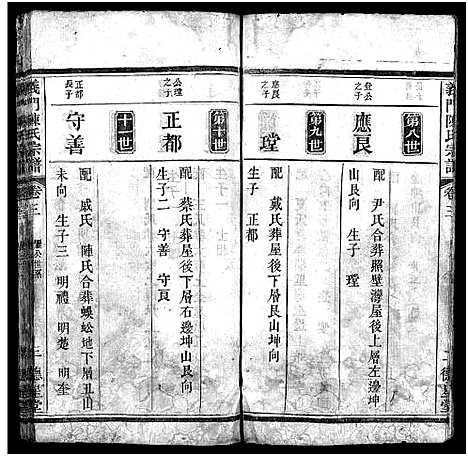 義門陳氏宗譜
卷三
二
德星堂
第八世
登公之子
應艮
配 尹氏合葬照壁灣屋後上層左邊坤
山艮向 生子 瑩
第九世
應艮之子
瑩
配 戴氏葬屋後下層艮山坤向
生子 正都
第十世
公瑩之子
正都
配 蔡氏葬屋後下層右邊坤山艮向
生子二 守善 守貢
十一世
正都長子
守善
配 戚氏 陳氏合葬蜈蚣地下層丑山
未向 生子三 明禮 明楚 明奎
義門陳氏宗譜
卷三
三
德星堂